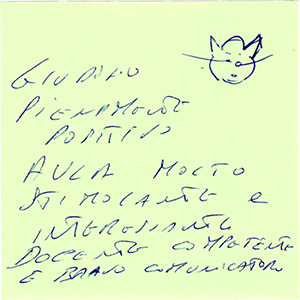 GIUDIZIO
PIENAMENTE
POSITIVO
AULA MOLTO
STIMOLANTE e
INTERESSANTE
DOCENTE COMPETENTE
E BRAVO COMUNICATORE